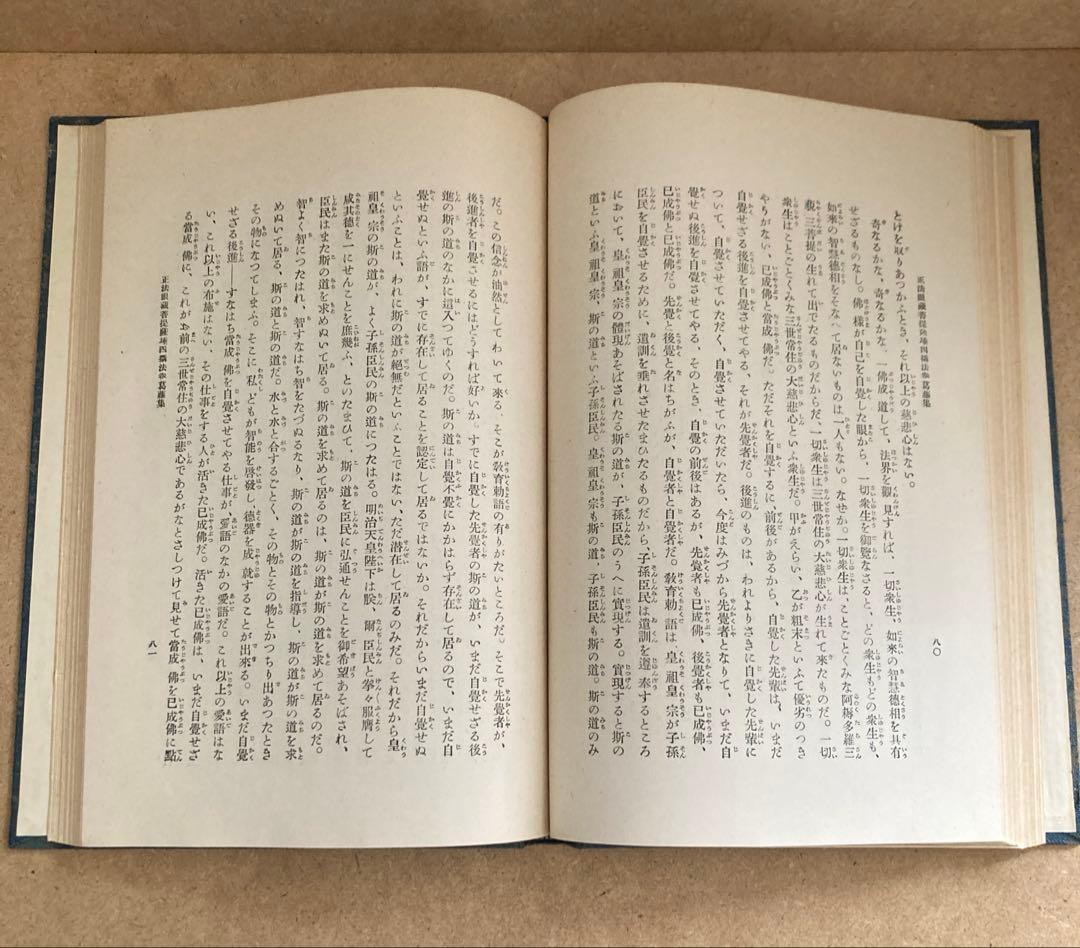 正法眼藏菩提薩埵四攝法葛藤集
八〇
とけを取りあつかふとき、それ以上の慈悲心はない。
奇なるかな、奇なるかな、一佛成道して、法界を觀見すれば、一切衆生、如來の智慧德相を具有
せざるものなし。佛樣が自己を自覺した眼から、一切衆生を御覽なさると、どの衆生もどの衆生も、
如來の智慧德相をそなへて居ないものは一人もない。なぜか。一切衆生は、ことごとくみな阿耨多羅三
藐三菩提の生れて出でたるものだからだ、一切衆生は三世常住の大慈悲心が生れて來たものだ。一切
衆生はことごとくみな三世常住の大慈悲心といふ衆生だ。甲がえらい、乙が粗末といふて優劣のつき
やうがない、已成佛と當成佛だ。ただそれを自覺するに、前後があるから、自覺した先輩は、いまだ
自覺せざる後進を自覺させてやる、それが先覺者だ。後進のものは、われよりさきに自覺した先輩に
ついて、自覺させていただく、自覺させていただいたら、今度はみづから先覺者となりて、いまだ自
覺せぬ後進を自覺させてやる、そのとき、自覺の前後はあるが、先覺者も已成佛、後覺者も已成佛、
已成佛と已成佛だ。先覺と後覺と名はちがふが、自覺者と自覺者だ。教育勅語は、皇祖皇宗が子孫
臣民を自覺させるために、遺訓を垂れさせたまひたるものだから、子孫臣民は遺訓を遵奉するところ
において、皇祖皇宗の體現あそばされたる斯の道が、子孫臣民のうへに實現する。實現すると斯の
道といふ皇祖皇宗、斯の道といふ子孫臣民。皇祖皇宗も斯の道、子孫臣民も斯の道。斯の道のみ
だ。この信念が油然としてわいて來る、そこが敎育勅語の有りがたいところだ。そこで先覺者が、
後進者を自覺させるにはどうすれば好いか。すでに自覺した先覺者の斯の道が、いまだ自覺せざる後
進の斯の道のなかに這入つてゆくのだ。斯の道は自覺不覺にかかはらず存在して居るので、いまだ自
覺せぬといふ語が、すでに存在して居ることを認定して居るではないか。それだからいまだ自覺せぬ
といふことは、われに斯の道が絕無だといふことではない、ただ潜在して居るのみだ。それだから皇
祖皇宗の斯の道が、よく子孫臣民の斯の道につたはる。明治天皇陛下は朕、爾臣民と拳々服膺して
咸其德を一にせんことを庶幾ふ、とのたまひて、斯の道を臣民に弘通せんことを御希望あそばされ、
臣民はまた斯の道を求めぬいて居る。斯の道を求めて居るのは、斯の道が斯の道を求めて居るのだ。
智よく智につたはれ、智すなはち智をたづぬるなり、斯の道が斯の道を指導し、斯の道が斯の道を求
めぬいて居る、斯の道と斯の道だ。水と水と合するごとく、その物とその物とかつちり出あつたとき
その物になつてしまふ。そこに私どもが智能を啓發し德器を成就することが出來る。いまだ自覺
せざる後進——すなはち當成佛を自覺させてやる仕事が、愛語のなかの愛語だ。これ以上の愛語はな
い、これ以上の布施はない、その仕事をする人が活きた已成佛だ。活きた已成佛は、いまだ自覺せざ
る當成佛に、これがお前の三世常住の大慈悲心であるがなとさしつけて見せて當成佛を已成佛に點
正法眼藏菩提薩埵四攝法葛藤集
八一